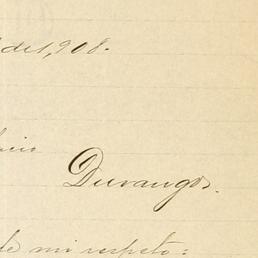 de 1,908.
Durango.
de mi respeto: